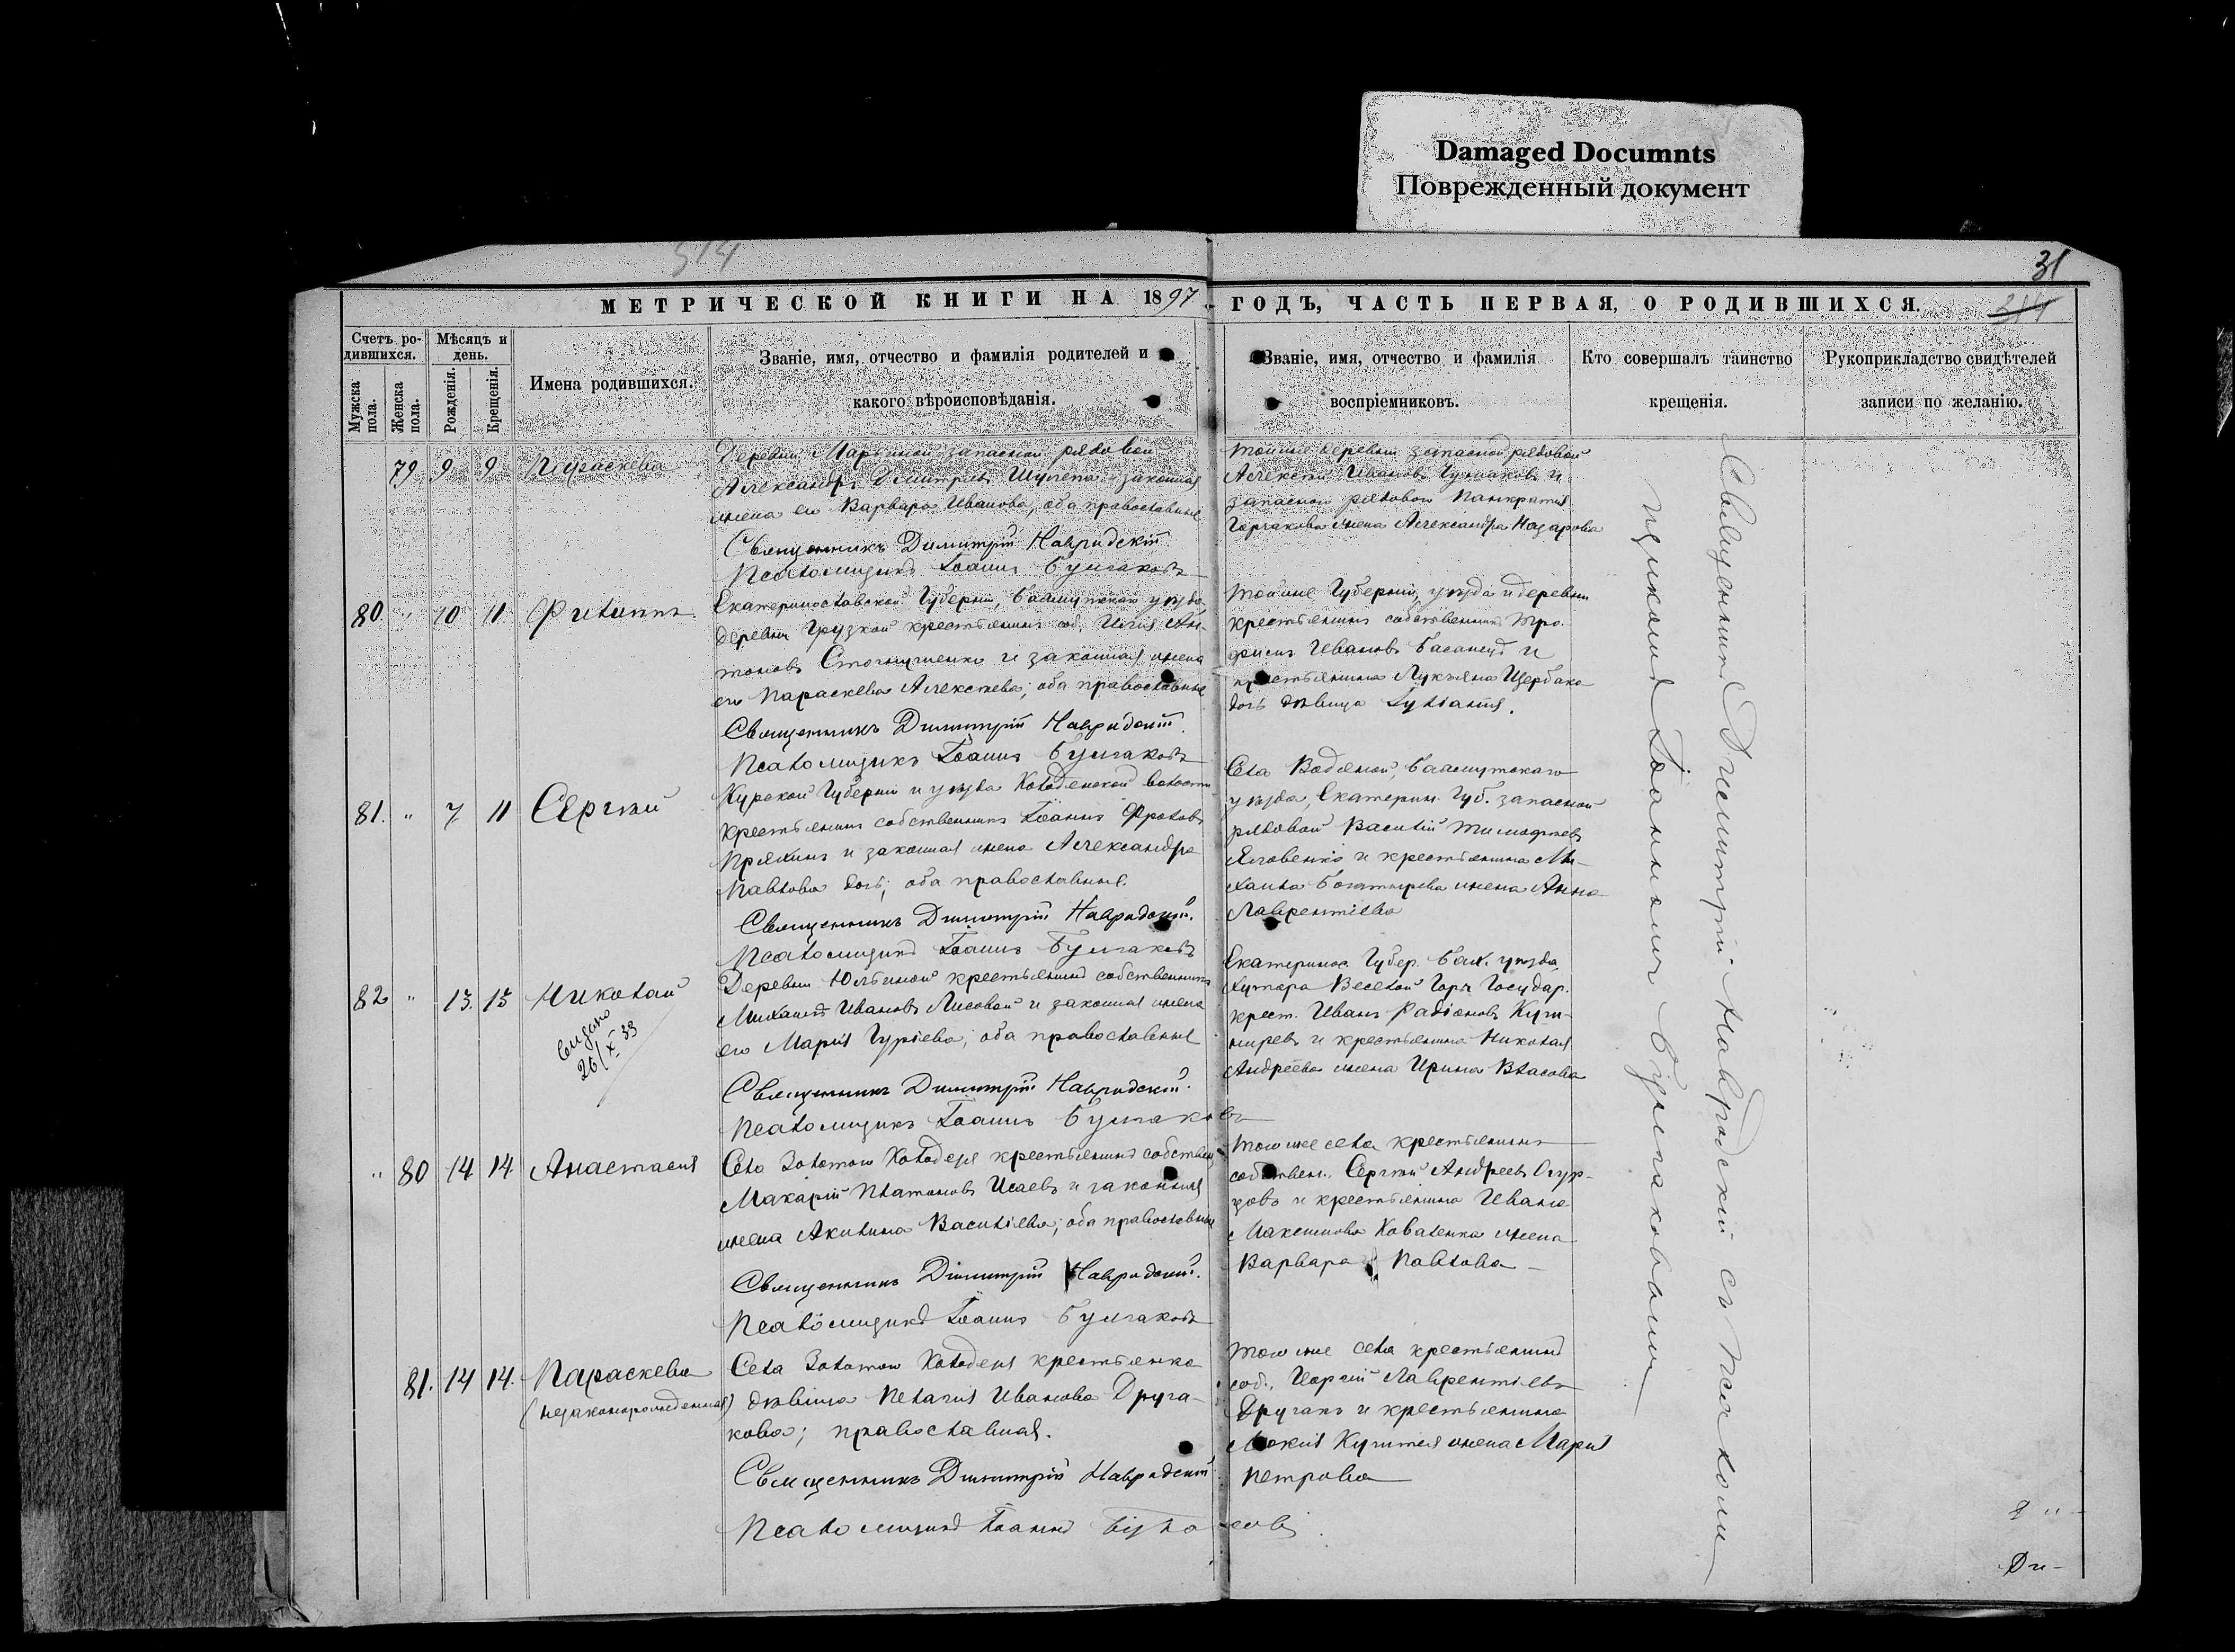 Damaged Documnts
Поврежденный документ
514
31
МЕТРИЧЕСКОЙ КНИГИ НА 1897 ГОДЪ, ЧАСТЬ ПЕРВАЯ, О РОДИВШИХСЯ.
Счетъ ро-
дившихся.
Мужска пола.
Женска пола.
Мѣсяцъ и
день.
Рожденія.
Крещенія.
Имена родившихся.
Званіе, имя, отчество и фамилія родителей и
какого вѣроисповѣданія.
Званіе, имя, отчество и фамилія
воспріемниковъ.
Кто совершалъ таинство
крещенія.
Рукоприкладство свидѣтелей
записи по желанію.
79 9 9 Параскева
Деревни Марьиной запасной рядовой
Александръ Дмитріевъ Шулепа и законная
жена его Варвара Иванова, оба православные
Священникъ Димитрій Навродскій.
Псаломщикъ Іоаннъ Булгаковъ
Той же деревни запасной рядовой
Алексѣй Ивановъ Гузмаковъ и
запасного рядового Панкратія
Горчакова жена Александра Назарова
80 " 10 11 Филиппъ
Екатеринославской Губерніи, Бахмутскаго уѣзда,
деревни Грузкой крестьянинъ соб. Илія Ан-
тоновъ и законная жена
его Параскева Алексѣева; оба православные
Священникъ Димитрій Навродскій.
Псаломщикъ Іоаннъ Булгаковъ
Той же Губерніи, уѣзда и деревни
крестьянинъ собственникъ Тро-
фимъ Ивановъ и
крестьянина Лукьяна Щербако
дочь дѣвица Іуліанія.
81. " 7 11 Сергѣй
Курской Губерніи и уѣзда Колоденской волости
крестьянинъ собственникъ Іоаннъ Фроловъ
Пряхинъ и законная жена Александра
Павлова дочь; оба православные.
Священникъ Димитрій Навродскій.
Псаломщикъ Іоаннъ Булгаковъ
Села Водяной, Бахмутскаго
уѣзда, Екатерин. Губ. запасной
рядовой Василій Тимофѣевъ
Яловенко и крестьянина Ми-
хаила Богатырева жена Анна
Лаврентіева
82 " 13. 15 Николай
выдано
26/X 39
Деревни Юльиной крестьянинъ собственникъ
Михаилъ Ивановъ Лисовой и законная жена
его Марія Гуріева; оба православные
Священникъ Димитрій Навродскій.
Псаломщикъ Іоаннъ Булгаковъ
Екатеринос. Губер. Бах. уѣзда,
хутора Веселой Горы Государ.
крест. Иванъ Радіоновъ Куш-
ниревъ и крестьянина Николая
Андреева жена Ирина Власова
" 80 14 14 Анастасія
Села Золотого Колодезя крестьянинъ собствен.
Макарій Платоновъ Исаевъ и законная
жена Акилина Василіева; оба православные
Священникъ Димитрій Навродскій.
Псаломщикъ Іоаннъ Булгаковъ
Того же села крестьянинъ
собствен. Сергѣй Андреевъ Огур-
цовъ и крестьянина Ивана
Максимова Коваленка жена
Варвара Павлова
81. 14 14. Параскева
(незаконорожденная)
Села Золотого Колодезя крестьянка
дѣвица Пелагія Иванова Друга-
кова; православная.
Священникъ Димитрій Навродскій
Псаломщикъ Іоаннъ Булгаковъ
Того же села крестьянинъ
соб. Лаврентіевъ
Другакъ и крестьянина
жена Марія
Петрова
Священникъ Димитрій Навродскій съ псалом-
щикомъ Іоанномъ Булгаковымъ
Ди-